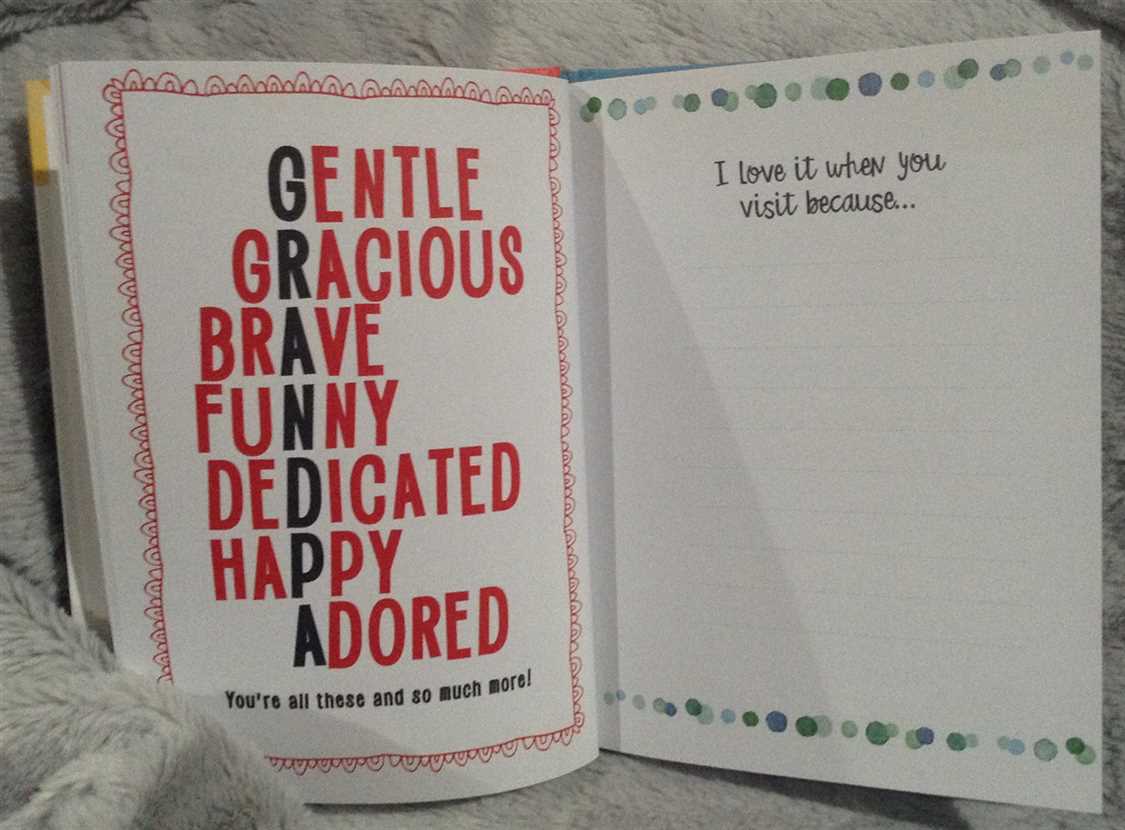 GENTLE
GRACIOUS
BRAVE
FUNNY
DEDICATED
HAPPY
ADORED
You're all these and so much more!
I love it when you
visit because...